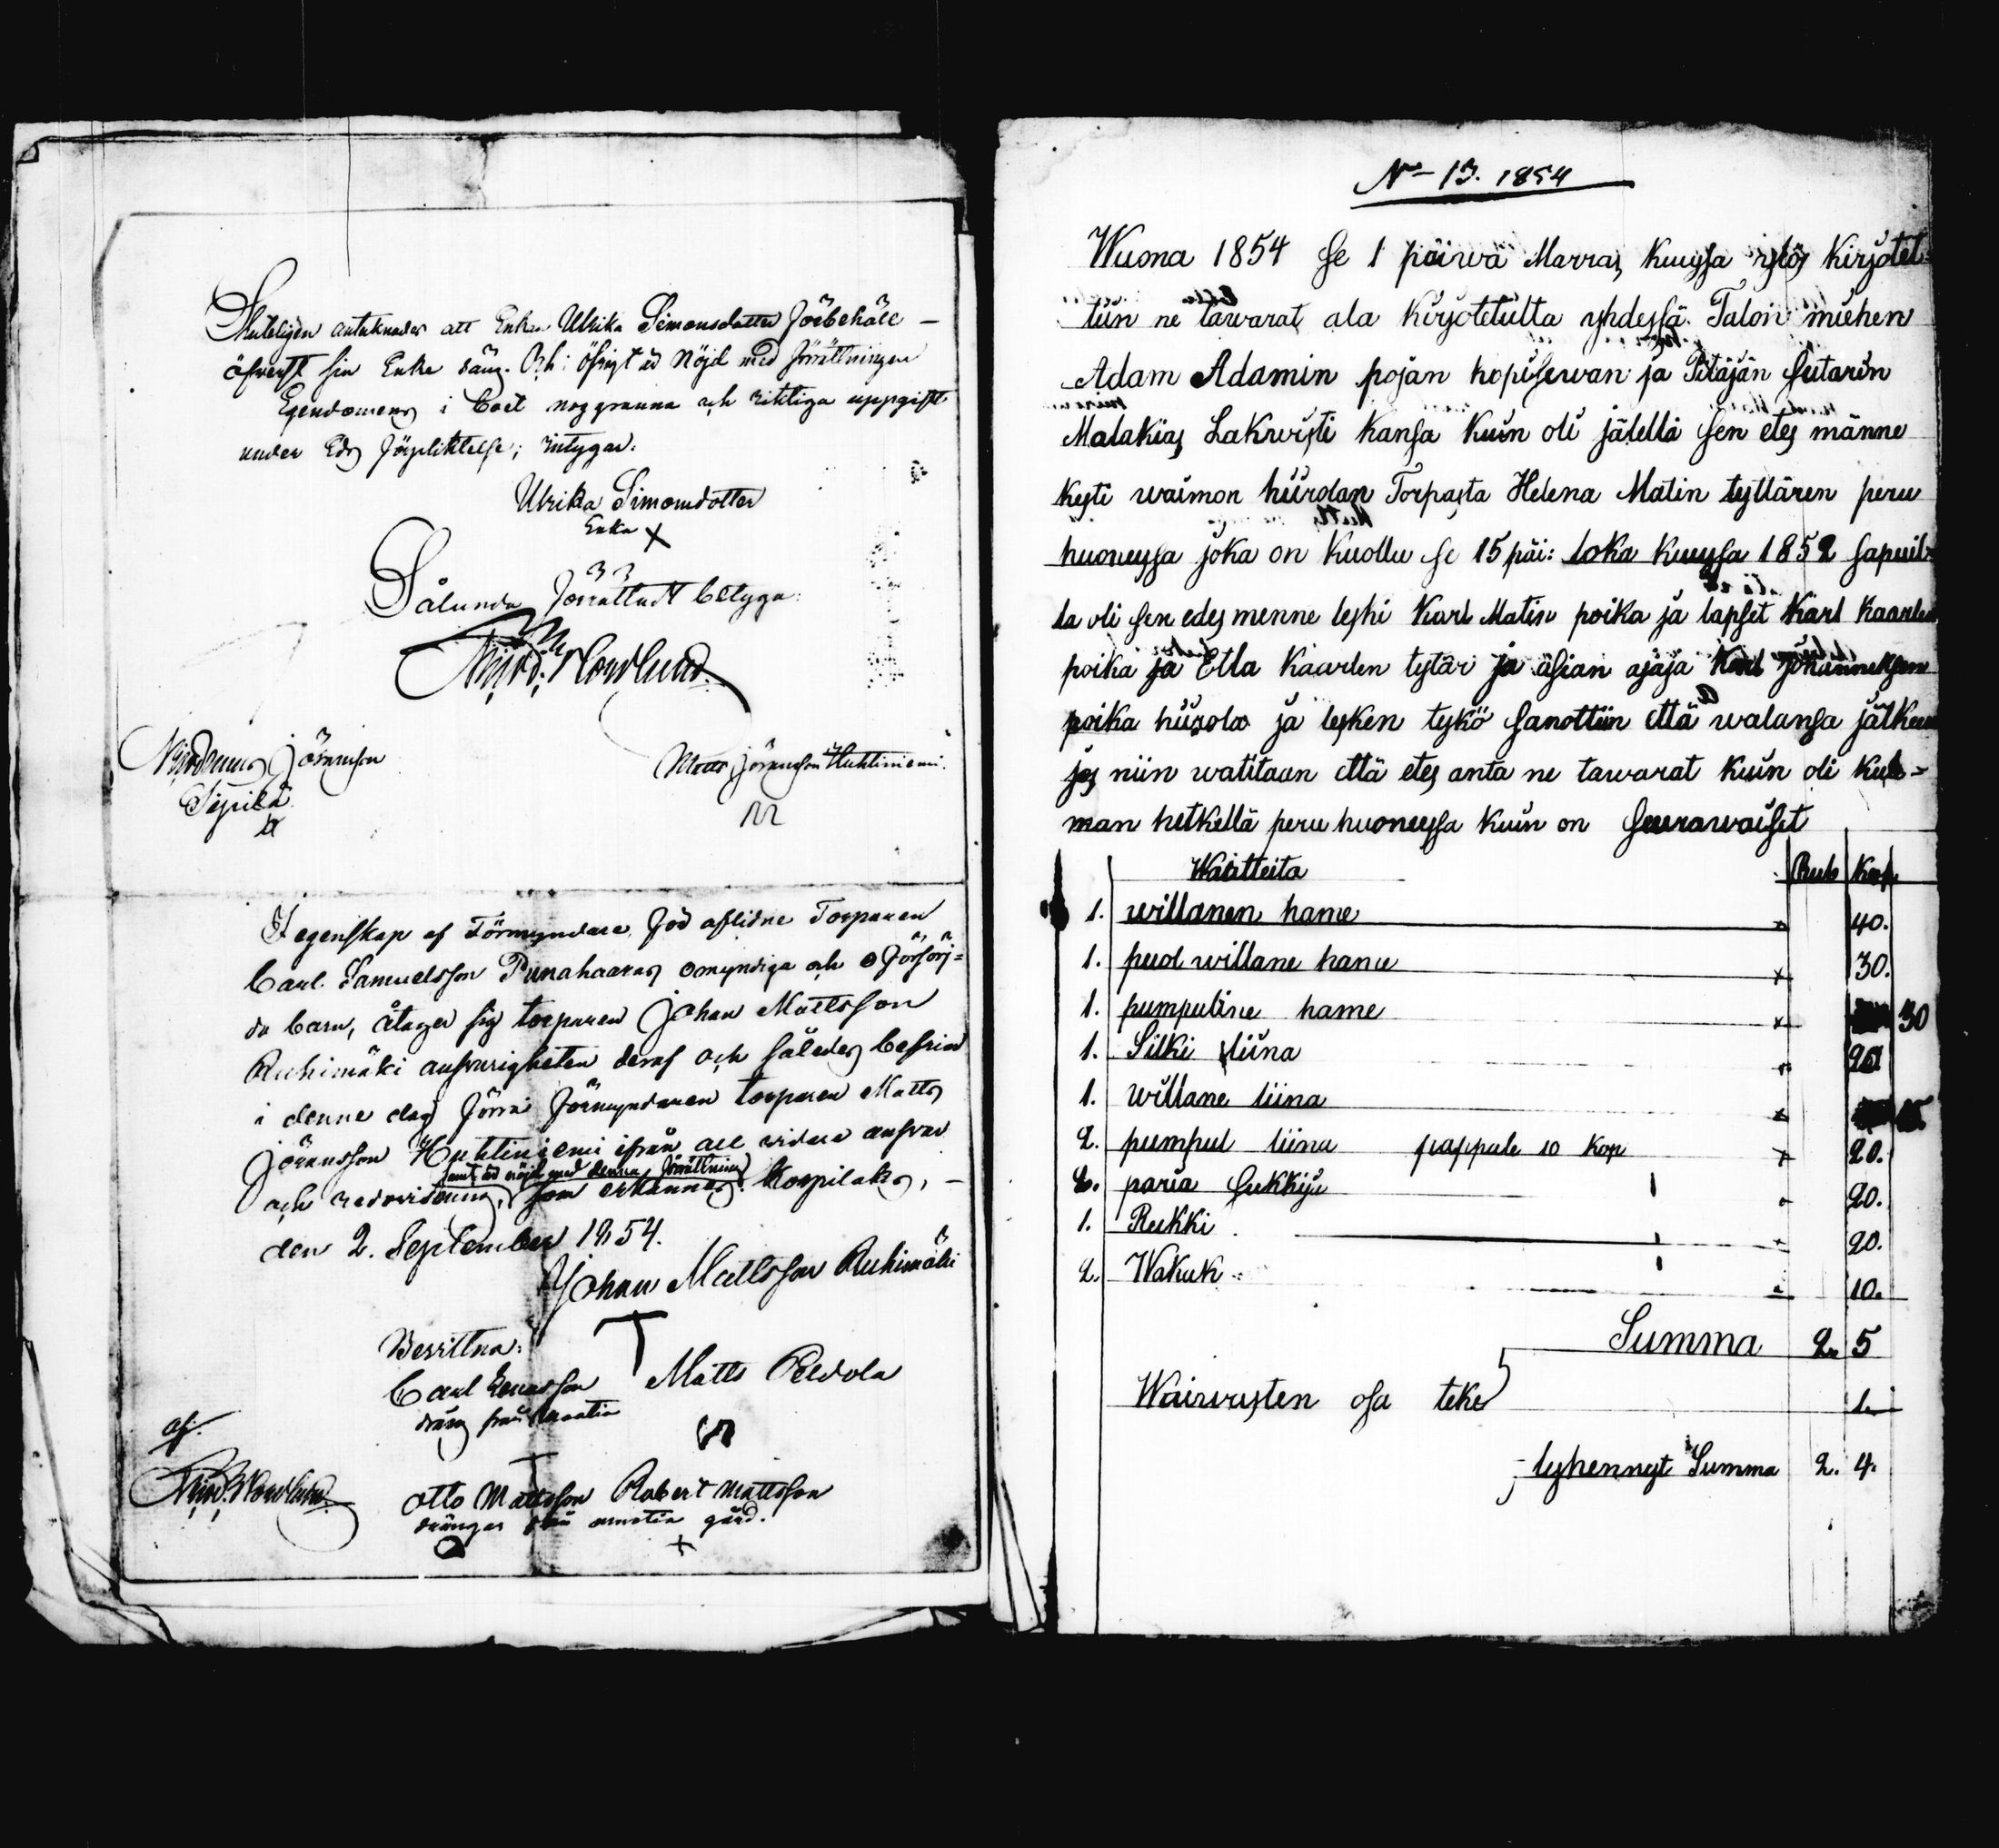 Slutligen antecknades att Enkan Ulrika Simonsdotter förbehåll
öfverst sin Enke säng. Och i öfrigt är Nöjd med förrättningen
Egendomens i boet noggranna och riktiga uppgift
under Eds förpliktelse; intygar.
Ulrika Simonsdotter
Enka X
Sålunda förrättadt betyga:
Nicodemus Jöransson
Seppilä
Matts Jöransson Huhtiniemi.
I egenskap af Förmyndare för aflidne Torparen
Carl Samuelsson Punahaaras omyndiga och oförsörj=
da barn, åtager sig torparen Johan Mattsson
Ruhimäki ansvarigheten deraf och således befrias
i denna dag förra förmyndaren torparen Matts
Jöransson Huhtiniemi ifrån all vidare ansvar
samt är nöjd med denna förrättning
och redovisning, som erkännes. Korpilaks,
den 2. September 1854.
Johan Mattsson Ruhimäki
Bevittna:
Carl
dräng från
Matts Peldola
af.
Otto Mattsson Robert Mattsson
drängar från gård.
X
No 13. 1854
Wuona 1854 se 1 päiwä Marras kuussa ylös kirjotet=
tiin ne tawarat ala kirjotetulta yhdessä Talon miehen
Adam Adamin pojan kopisewan ja Pitäjän sutarin
Malakias Lakwisti kansa kuin oli jälellä sen etes männe
kesti waimon hiirolan Torpasta Helena Matin tyttären peru
huonessa joka on kuollu se 15 päi: loka kuussa 1852 sapuil
la oli sen edes menne leski Karl Matin poika ja lapset Karl Kaarlen
poika ja Etla Kaarlen tytär ja äsian ajaja Karl Johanneksen
poika hiirola ja lesken tykö sanottiin että walansa jälkeen
jos niin watitaan että etes anta ne tawarat kuin oli kuol=
man hetkellä peru huonessa kuin on seurawaiset
Waatteita Rub Kop
1. willanen hame 40.
1. puol willane hame 30.
1. pumpuline hame 30
1. Silki liina 20
1. willane liina 15.
2. pumpul liina kappale 10 kop 20.
2. paria sukkija 20.
1. Rukki 20.
2. Wakuk 10.
Summa 2. 5
Waiwasten osa teke 1.
lyhennyt Summa 2. 4.